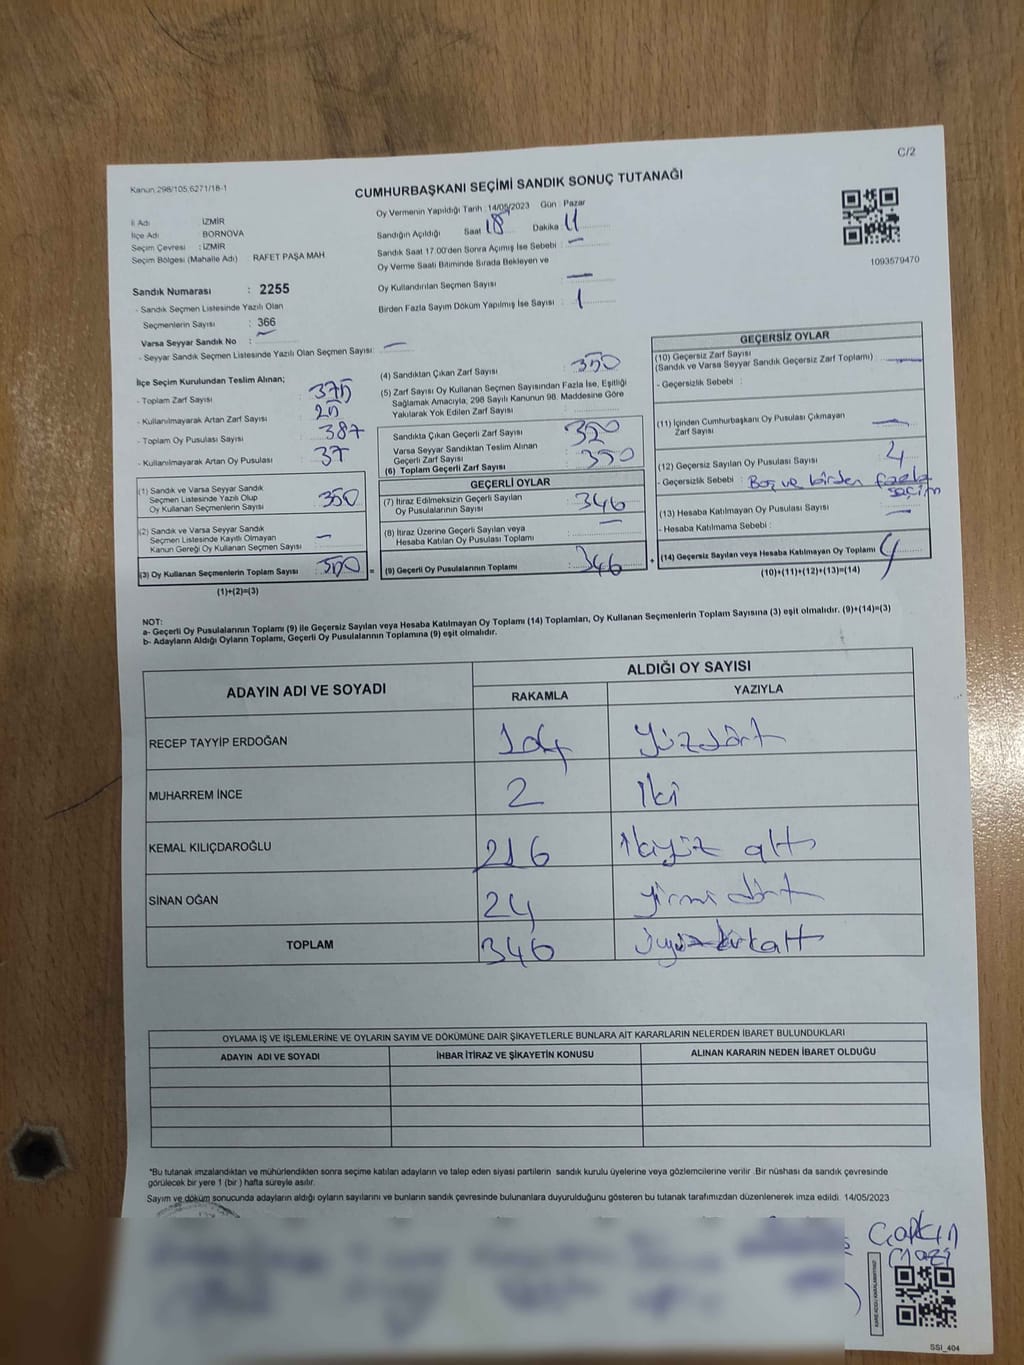 C/2
Kanun:298/105,6271/18-1
CUMHURBAŞKANI SEÇİMİ SANDIK SONUÇ TUTANAĞI
İl Adı : İZMİR
İlçe Adı BORNOVA
Seçim Çevresi : İZMİR
Seçim Bölgesi (Mahalle Adı) RAFET PAŞA MAH
Sandık Numarası : 2255
- Sandık Seçmen Listesinde Yazılı Olan
Seçmenlerin Sayısı : 366
Varsa Seyyar Sandık No : —
- Seyyar Sandık Seçmen Listesinde Yazılı Olan Seçmen Sayısı: —
Oy Vermenin Yapıldığı Tarih :14/05/2023 Gün : Pazar
Sandığın Açıldığı Saat 18 Dakika 11
Sandık Saat 17.00'den Sonra Açımış İse Sebebi : —
Oy Verme Saati Bitiminde Sırada Bekleyen ve
Oy Kullandırılan Seçmen Sayısı : —
Birden Fazla Sayım Döküm Yapılmış İse Sayısı : 1
1093579470
İlçe Seçim Kurulundan Teslim Alınan;
- Toplam Zarf Sayısı : 375
- Kullanılmayarak Artan Zarf Sayısı : 25
- Toplam Oy Pusulası Sayısı : 387
- Kullanılmayarak Artan Oy Pusulası : 37
(1) Sandık ve Varsa Seyyar Sandık
Seçmen Listesinde Yazılı Olup
Oy Kullanan Seçmenlerin Sayısı : 350
(2) Sandık ve Varsa Seyyar Sandık
Seçmen Listesinde Kayıtlı Olmayan
Kanun Gereği Oy Kullanan Seçmen Sayısı : —
(3) Oy Kullanan Seçmenlerin Toplam Sayısı : 350
(1)+(2)=(3)
(4) Sandıktan Çıkan Zarf Sayısı : 350
(5) Zarf Sayısı Oy Kullanan Seçmen Sayısından Fazla İse, Eşitliği
Sağlamak Amacıyla, 298 Sayılı Kanunun 98. Maddesine Göre
Yakılarak Yok Edilen Zarf Sayısı :
Sandıkta Çıkan Geçerli Zarf Sayısı : 350
Varsa Seyyar Sandıktan Teslim Alınan
Geçerli Zarf Sayısı : 350
(6) Toplam Geçerli Zarf Sayısı
GEÇERLİ OYLAR
(7) İtiraz Edilmeksizin Geçerli Sayılan
Oy Pusulalarının Sayısı : 346
(8) İtiraz Üzerine Geçerli Sayılan veya
Hesaba Katılan Oy Pusulası Toplamı : —
= (9) Geçerli Oy Pusulalarının Toplamı : 346
GEÇERSİZ OYLAR
(10) Geçersiz Zarf Sayısı
(Sandık ve Varsa Seyyar Sandık Geçersiz Zarf Toplamı) : —
- Geçersizlik Sebebi :
(11) İçinden Cumhurbaşkanı Oy Pusulası Çıkmayan
Zarf Sayısı : —
(12) Geçersiz Sayılan Oy Pusulası Sayısı : 4
- Geçersizlik Sebebi : Boş ve birden fazla
seçim
(13) Hesaba Katılmayan Oy Pusulası Sayısı : —
- Hesaba Katılmama Sebebi :
+ (14) Geçersiz Sayılan veya Hesaba Katılmayan Oy Toplamı : 4
(10)+(11)+(12)+(13)=(14)
NOT:
a- Geçerli Oy Pusulalarının Toplamı (9) ile Geçersiz Sayılan veya Hesaba Katılmayan Oy Toplamı (14) Toplamları, Oy Kullanan Seçmenlerin Toplam Sayısına (3) eşit olmalıdır. (9)+(14)=(3)
b- Adayların Aldığı Oyların Toplamı, Geçerli Oy Pusulalarının Toplamına (9) eşit olmalıdır.
ADAYIN ADI VE SOYADI ALDIĞI OY SAYISI
RAKAMLA YAZIYLA
RECEP TAYYİP ERDOĞAN 104 Yüzdört
MUHARREM İNCE 2 İki
KEMAL KILIÇDAROĞLU 216 ikiyüz altı
SİNAN OĞAN 24 yirmi dört
TOPLAM 346 üçyüz kırkaltı
OYLAMA İŞ VE İŞLEMLERİNE VE OYLARIN SAYIM VE DÖKÜMÜNE DAİR ŞİKAYETLERLE BUNLARA AİT KARARLARIN NELERDEN İBARET BULUNDUKLARI
ADAYIN ADI VE SOYADI İHBAR İTİRAZ VE ŞİKAYETİN KONUSU ALINAN KARARIN NEDEN İBARET OLDUĞU
*Bu tutanak imzalandıktan ve mühürlendikten sonra seçime katılan adayların ve talep eden siyasi partilerin sandık kurulu üyelerine veya gözlemcilerine verilir .Bir nüshası da sandık çevresinde
görülecek bir yere 1 (bir ) hafta süreyle asılır.
Sayım ve döküm sonucunda adayların aldığı oyların sayılarını ve bunların sandık çevresinde bulunanlara duyurulduğunu gösteren bu tutanak tarafımızdan düzenlenerek imza edildi. 14/05/2023
SSI_404